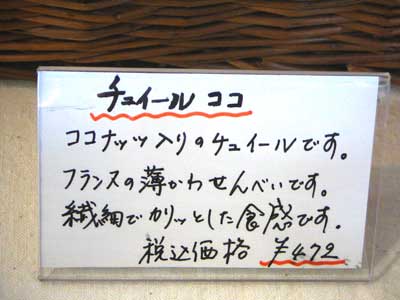 チュイール ココ
ココナッツ入りのチュイールです。
フランスの薄かわせんべいです。
繊細でカリッとした食感です。
税込価格 ¥472